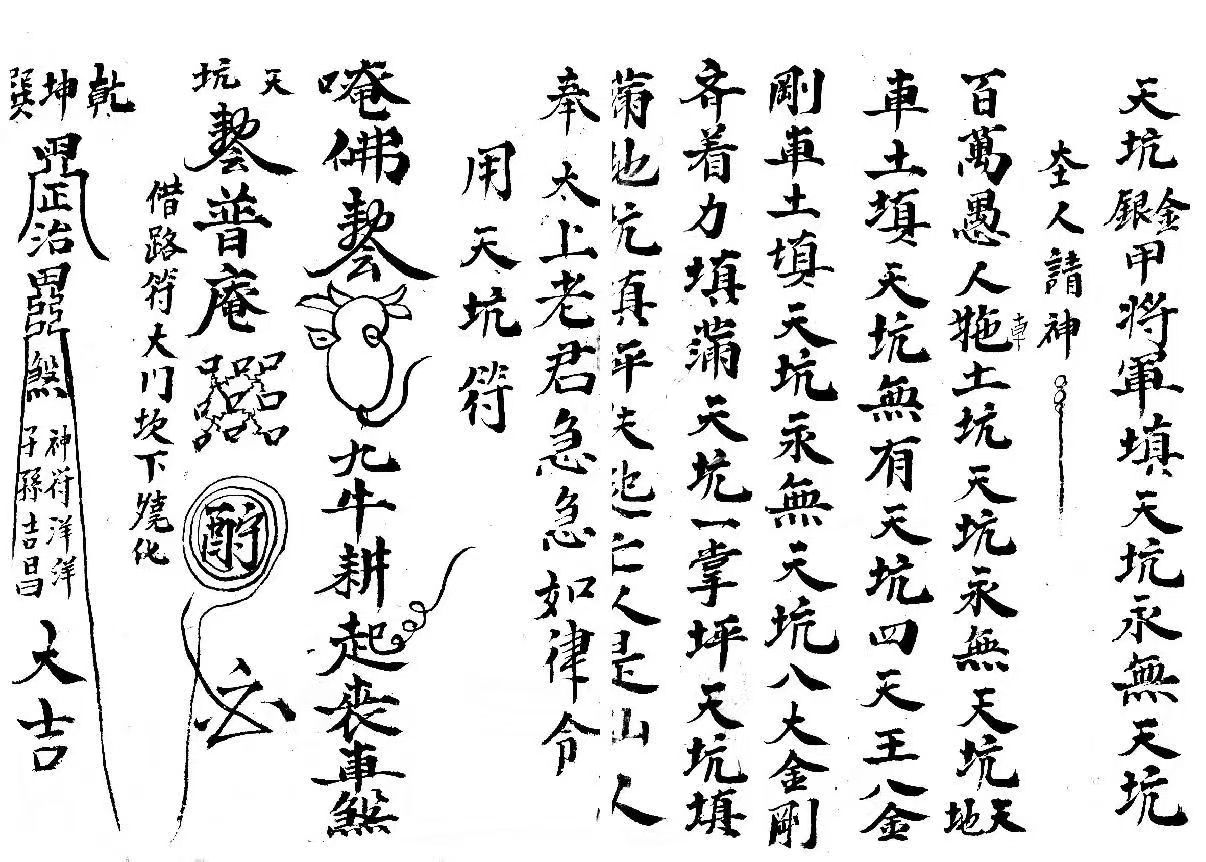 天坑金銀甲將軍填天坑永無天坑
人請神
百萬愚人拖土坑天坑永無天坑天地
車
車土填天坑無有天坑四天王八金
剛車土填天坑永無天坑八大金剛
齊着力填滿天坑一掌坪天坑填
人是山人
奉太上老君急急如律令
用天坑符
唵佛
九牛耕起喪車煞
天坑
普庵
借路符大門坎下燒化
乾坤巽
正治
煞
神符洋洋
子孫吉昌
大吉